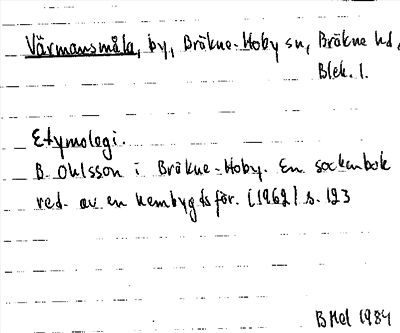 Värmansmåla, by, Bräkne-Hoby sn, Bräkne hd,
Blek. l.
Etymologi.
B. Ohlsson i Bräkne-Hoby. En sockenbok
red. av en hembygdsför. (1962) s. 123
BHel 1984